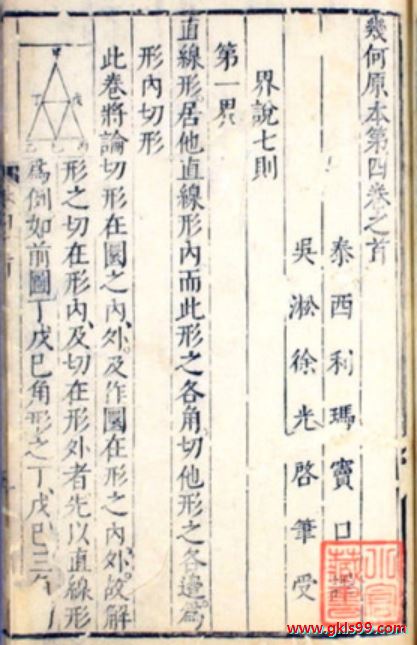 幾何原本第四卷之首
泰西利瑪竇口
吳淞徐光啓筆受
界說七則
第一界
直線形居他直線形內而此形之各角切他形之各邊爲
形內切形
此卷將論切形在圜之內外及作圜在形之內外故解
形之切在形內及切在形外者先以直線形
爲例如前圖丁戊己角形之丁戊己三角
甲
丁 戊
乙 己 丙
www.gkls99.com